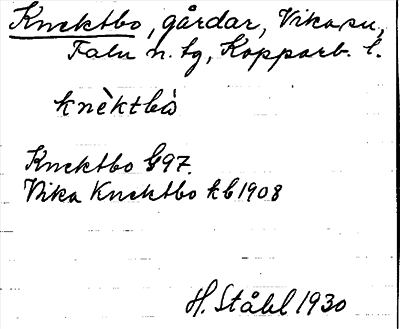 Knektbo, gårdar, Vika sn,
Falu n. tg, Kopparb. l.
knèktbò
Knektbo G97.
Vika Knektbo kb 1908
H. Ståhl 1930